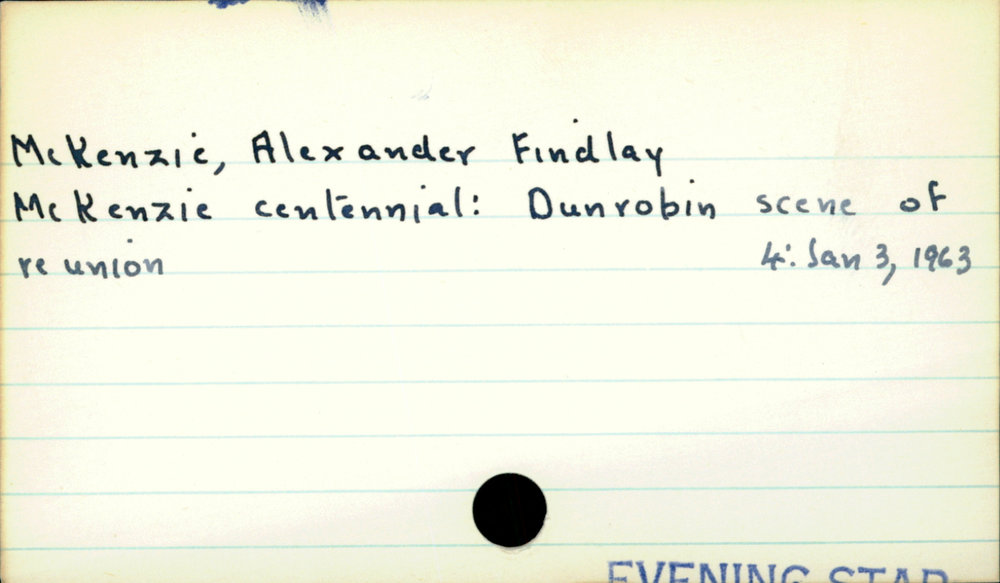 McKenzie, Alexander Findlay
McKenzie centennial: Dunrobin scene of
reunion 4: Jan 3, 1963
EVENING STAR